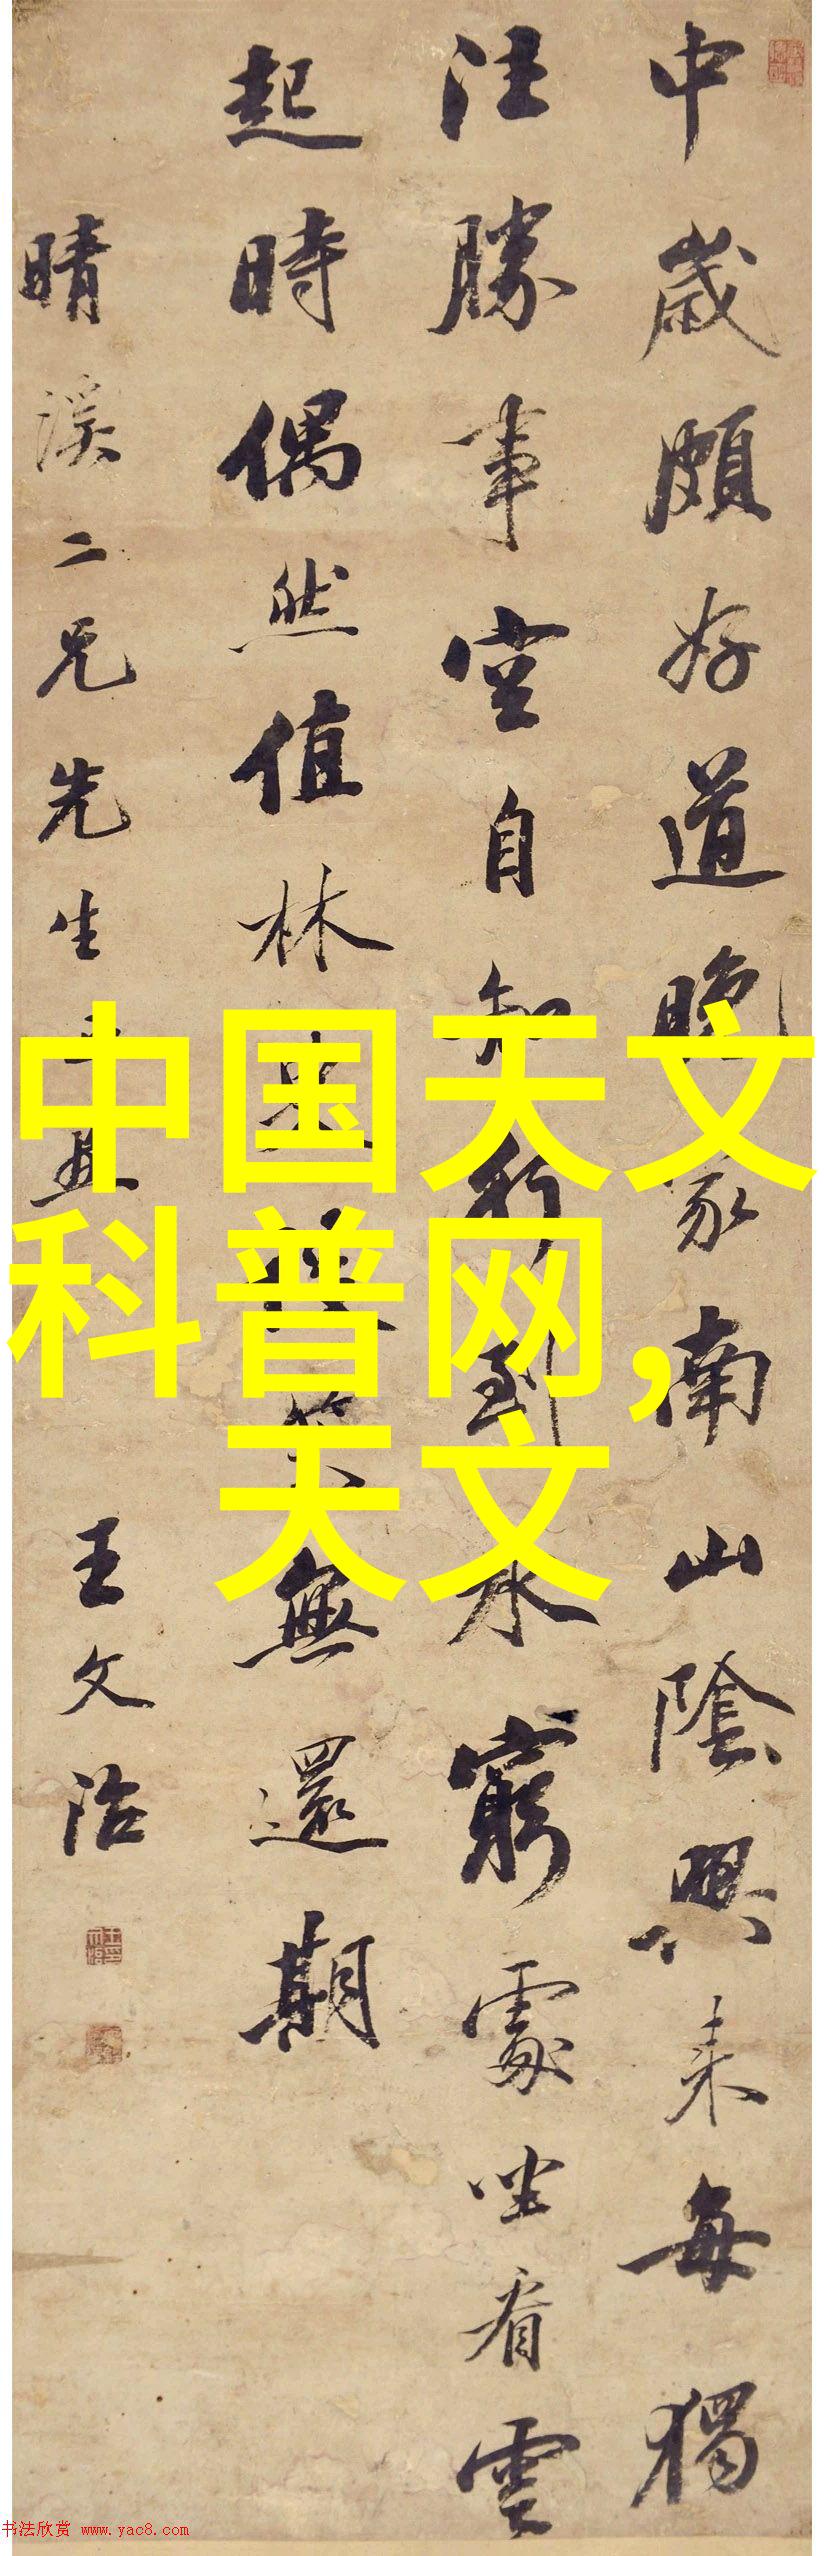 中歲頗好道晚家南山陰興來每獨
往勝事空自知行到水窮處坐看雲
起時偶然值林叟談笑無還期
晴溪二兄先生
王文治
中国天文
科普网,
天文
书法欣赏 www.yac8.com